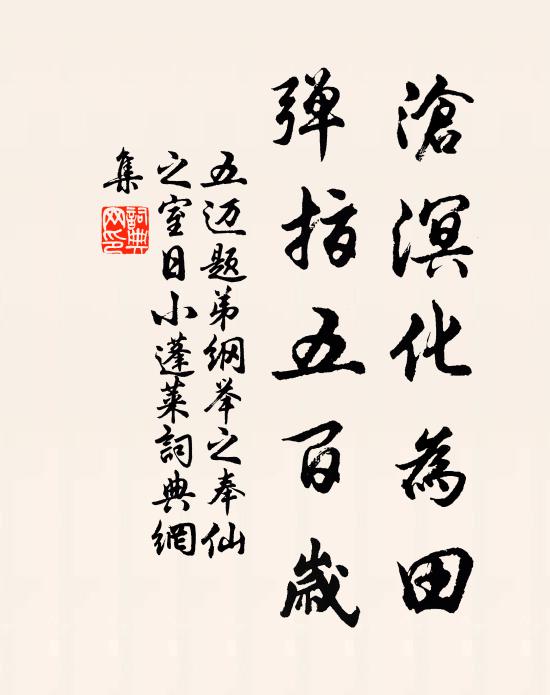 滄溟化為田
弹指五百歲
五迈题弟纲举之奉仙
之室日小蓬莱詞典網
集
詞典
网印